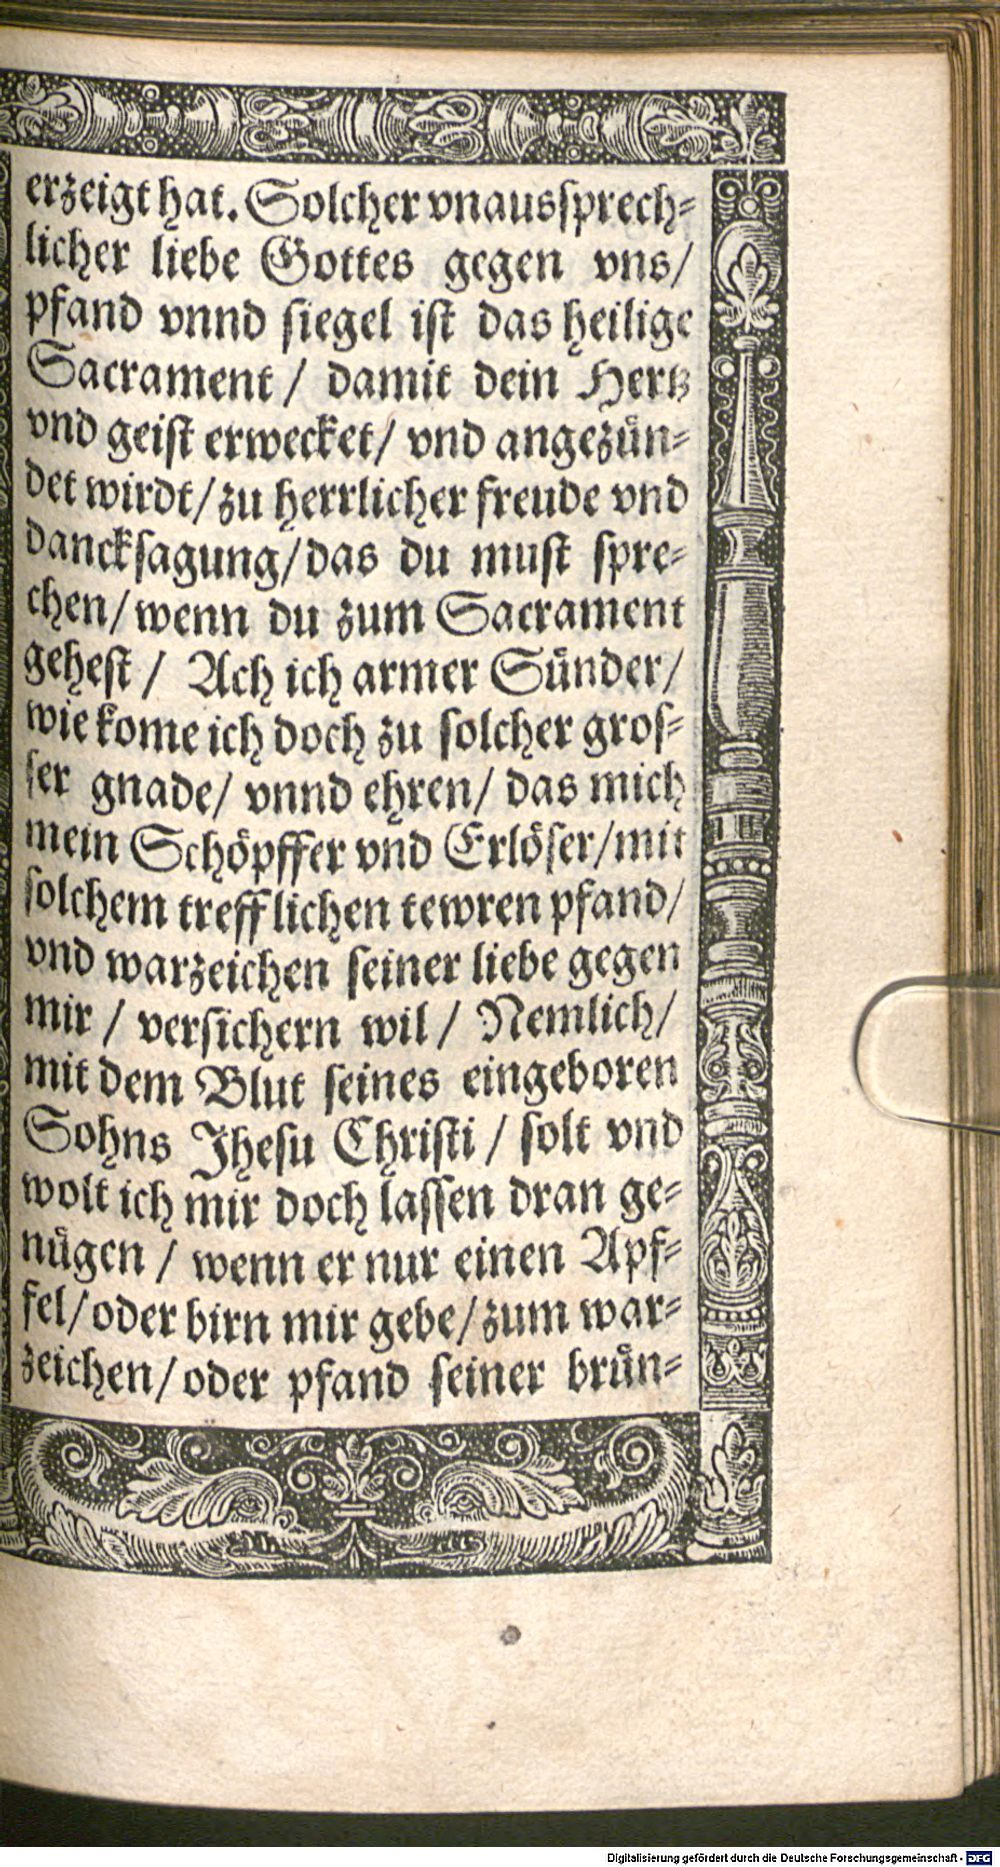 erzeigt hat. Solcher vnausſprech⸗
licher liebe Gottes gegen vns/
pfand vnnd ſiegel iſt das heilige
Sacrament / damit dein Hertz
vnd geiſt erwecket/ vnd angezün⸗
det wirdt/ zu herrlicher freude vnd
danckſagung/ das du muſt ſpre⸗
chen/ wenn du zum Sacrament
geheſt / Ach ich armer Sünder/
wie kome ich doch zu ſolcher groſ⸗
ſer gnade/ vnnd ehren/ das mich
mein Schöpffer vnd Erlöſer/ mit
ſolchem trefflichen tewren pfand/
vnd warzeichen ſeiner liebe gegen
mir / verſichern wil / Nemlich/
mit dem Blut ſeines eingeboren
Sohns Jheſu Chriſti / ſolt vnd
wolt ich mir doch laſſen dran ge⸗
nügen / wenn er nur einen Apf⸗
fel/ oder birn mir gebe/ zum war⸗
zeichen/ oder pfand ſeiner brün⸗
Digitalisierung gefördert durch die Deutsche Forschungsgemeinschaft - DFG